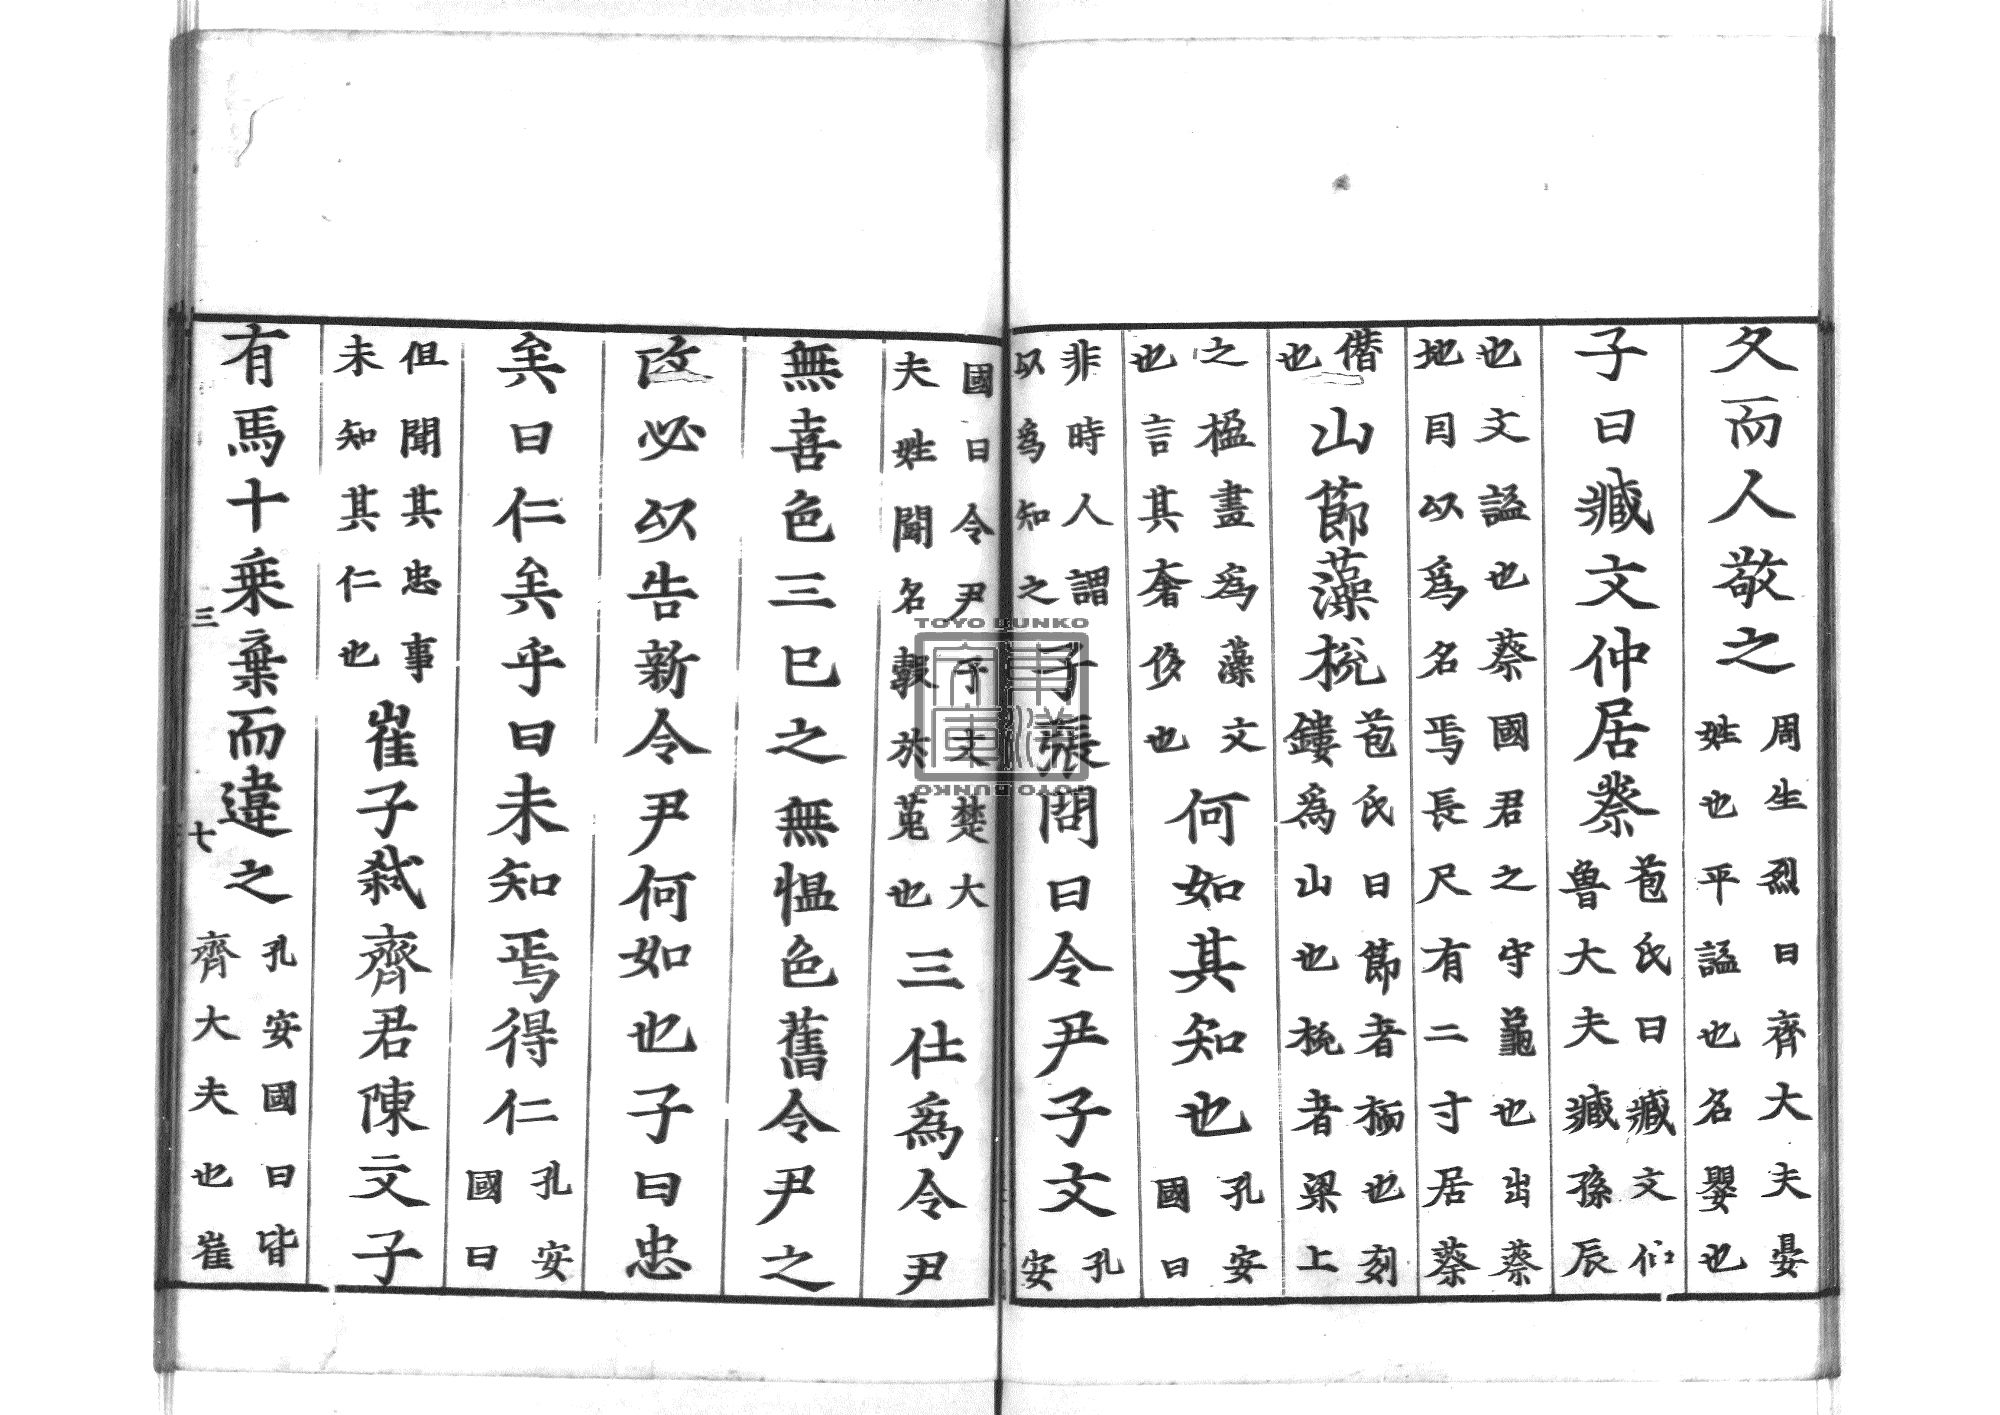 久而人敬之周生烈曰齊大夫晏姓也平謚也名嬰也
子曰臧文仲居蔡苞氏曰臧文仲魯大夫臧孫辰
也文謚也蔡國君之守龜也出蔡地因以爲名焉長尺有二寸居蔡
僭也山節藻梲苞氏曰節者栭也刻鏤爲山也梲者梁上
之楹畫爲藻文也言其奢侈也何如其知也孔安國曰
非時人謂以爲知之子張問曰令尹子文孔安
國曰令尹子文楚大夫姓鬪名穀於菟也三仕爲令尹
無喜色三已之無慍色舊令尹之
政必以告新令尹何如也子曰忠
矣曰仁矣乎曰未知焉得仁孔安國曰
但聞其忠事未知其仁也崔子弑齊君陳文子
有馬十乗棄而違之孔安國曰皆齊大夫也崔
三 七
TOYO BUNKO
東洋文庫
TOYO BUNKO